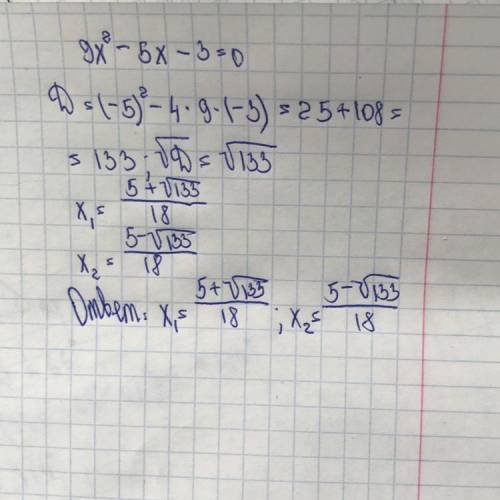 9x² - 5x - 3 = 0
D = (-5)² - 4 · 9 · (-3) = 25 + 108 =
= 133 ; √D = √133
x₁ = (5 + √133)/18
x₂ = (5 - √133)/18
Ответ: x₁ = (5 + √133)/18 ; x₂ = (5 - √133)/18